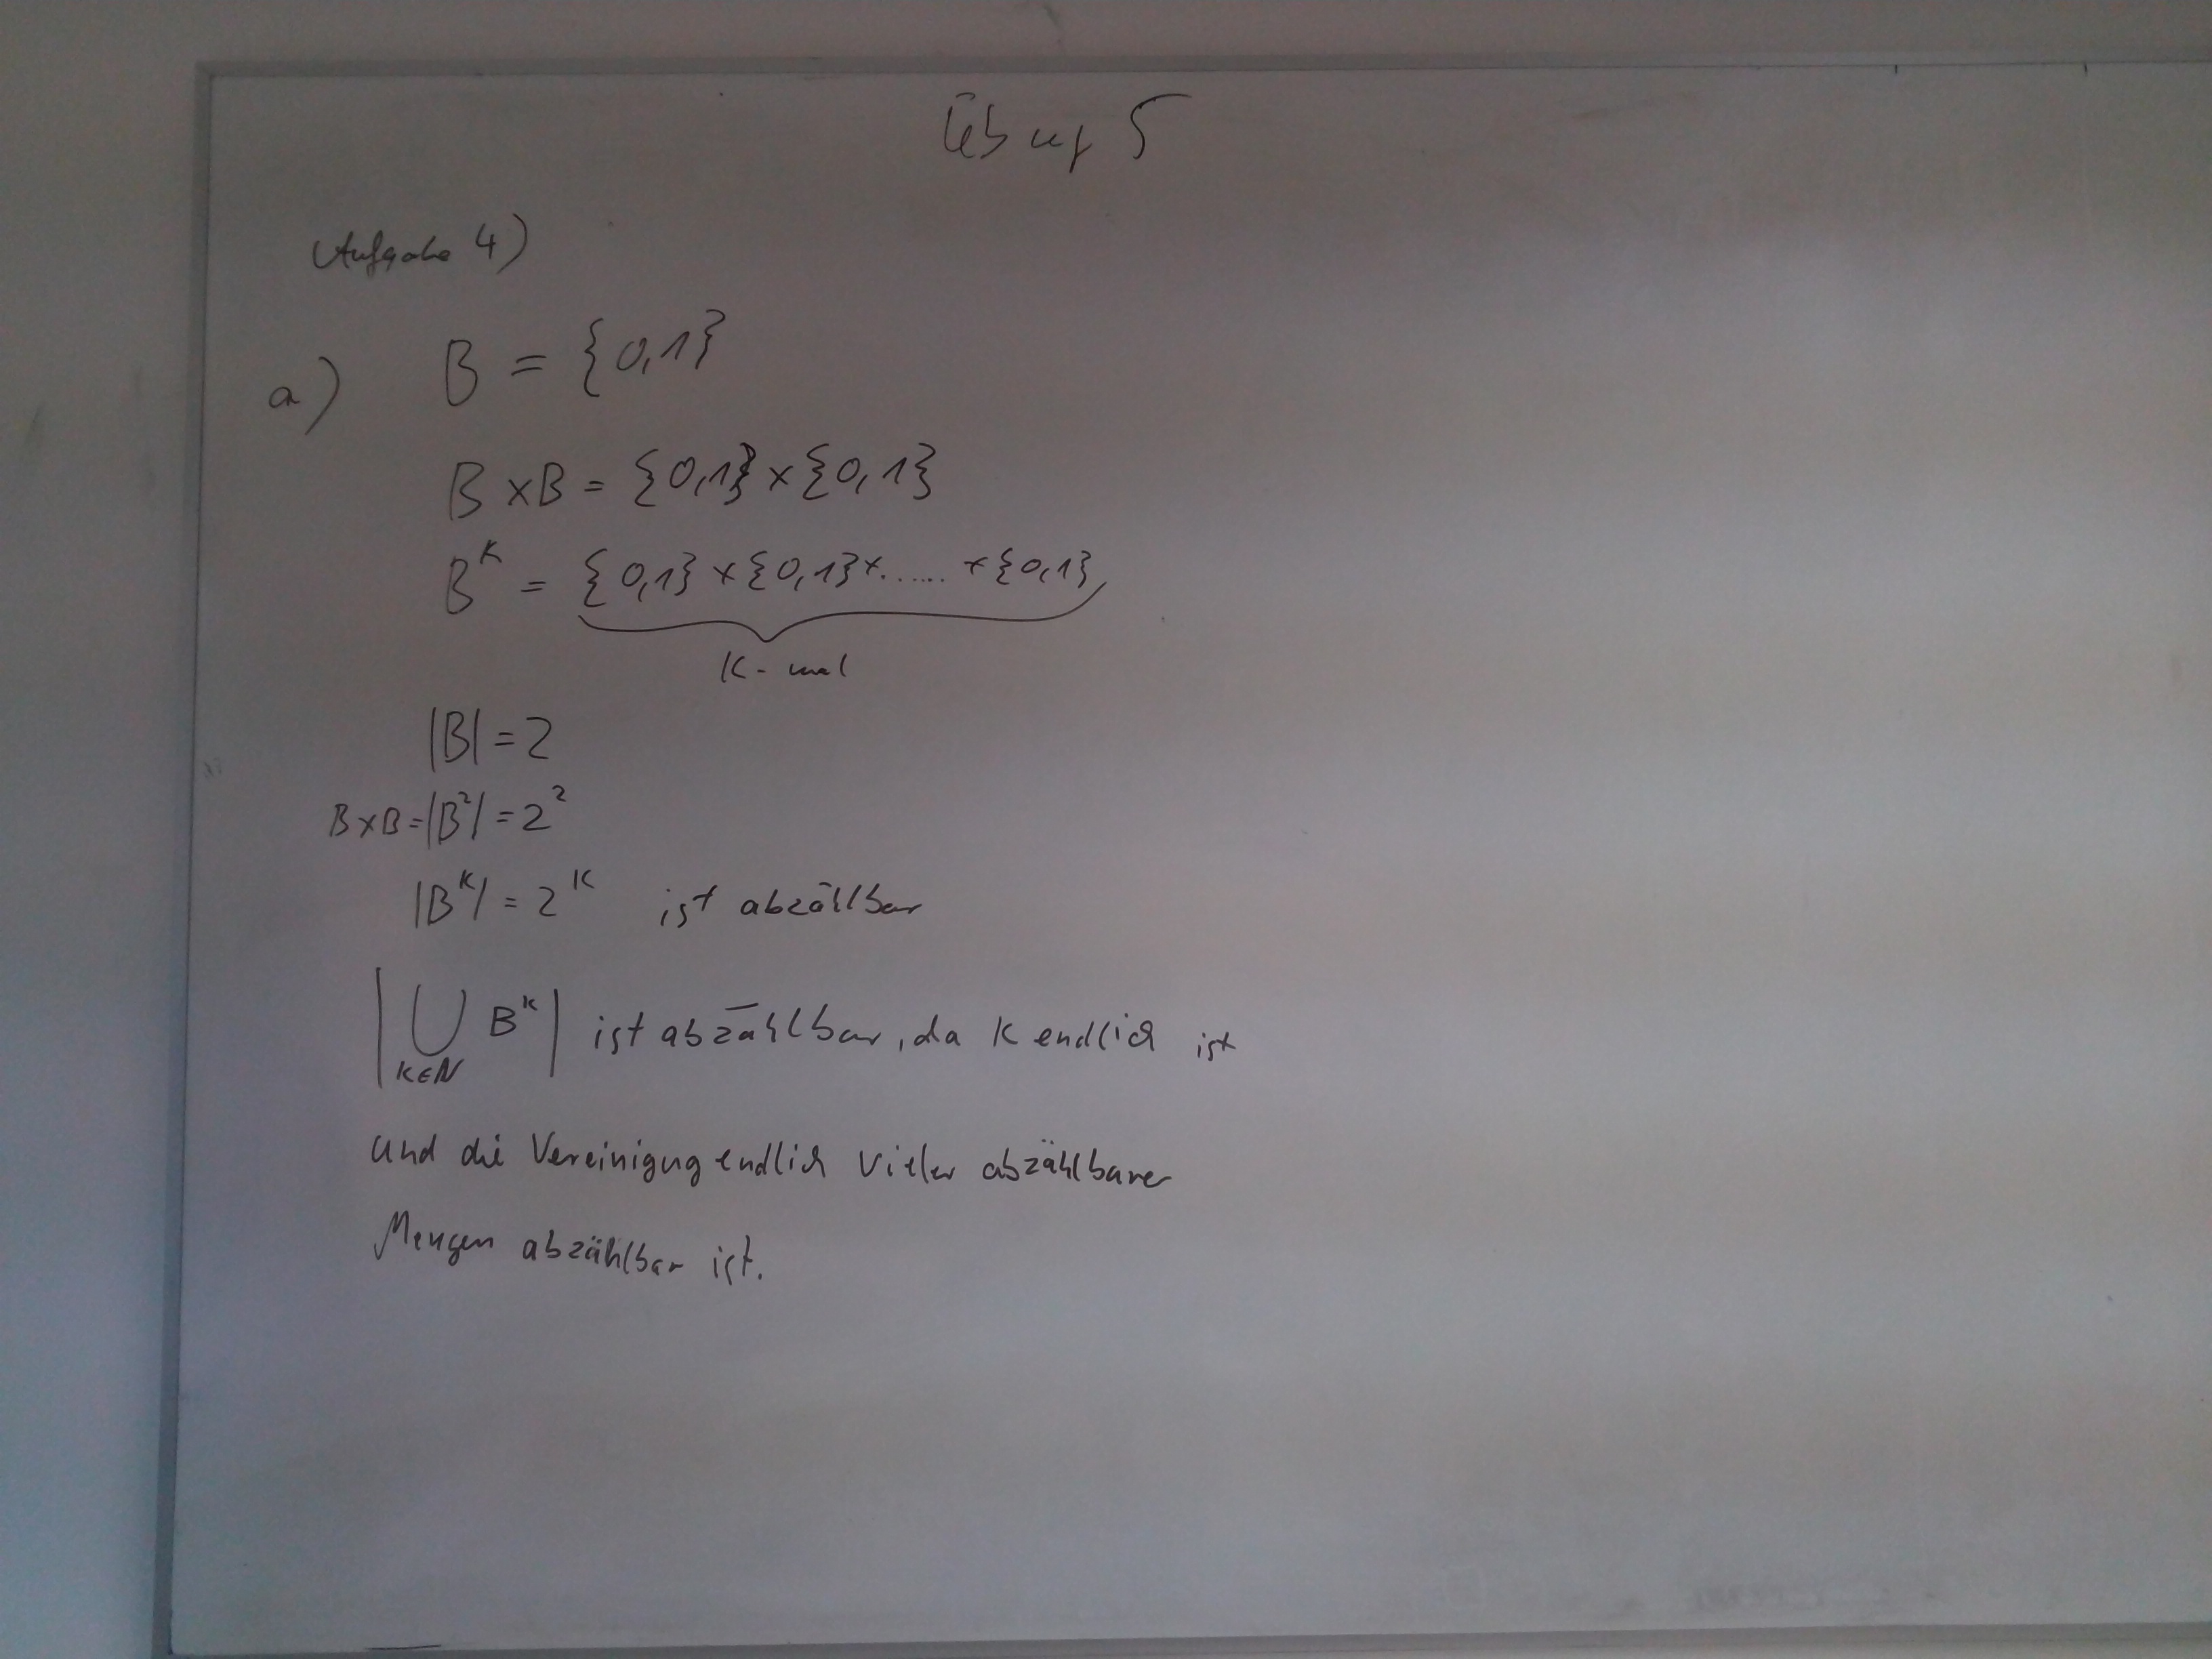 Übung 5
Aufgabe 4)
a) B = {0,1}
B×B = {0,1}×{0,1}
B^K = {0,1}×{0,1}×......×{0,1}
K-mal
|B| = 2
B×B=|B²| = 2²
|B^K| = 2^K ist abzählbar
|⋃ B^K| ist abzählbar, da K endlich ist
K∈N
und die Vereinigug endlich vieler abzählbarer
Mengen abzählbar ist.